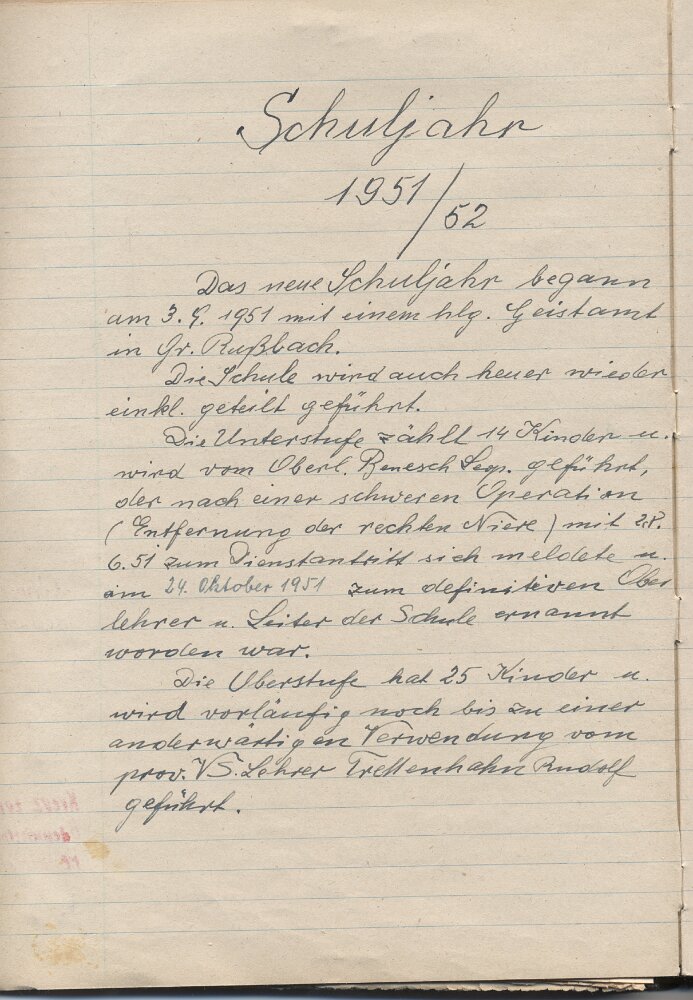 Schuljahr
1951/52
Das neue Schuljahr begann
am 3. 9. 1951 mit einem hlg. Geistamt
in Gr. Rußbach.
Die Schule wird auch heuer wieder
einkl. geteilt geführt.
Die Unterstufe zählt 14 Kinder u.
wird vom Oberl. Benesch geführt,
der nach einer schweren Operation
(Entfernung der rechten Niere) mit
6.51 zum Dienstantritt sich meldete u.
am 24. Oktober 1951 zum definitiven Ober
lehrer u. Leiter der Schule ernannt
worden war.
Die Oberstufe hat 25 Kinder u.
wird vorläufig noch bis zu einer
anderwärtigen Verwendung vom
prov. VS. Lehrer Trettenhahn Rudolf
geführt.